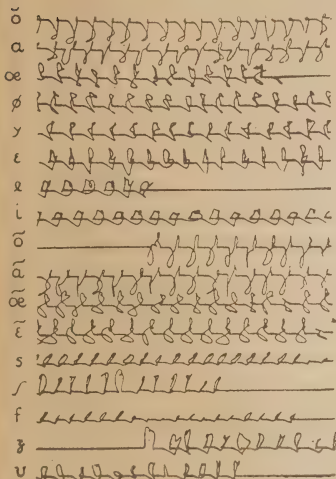 õ
a
œ
ø
y
ɛ
e
i
õ
ã
œ̃
ɛ̃
s
ʃ
f
ʒ
v